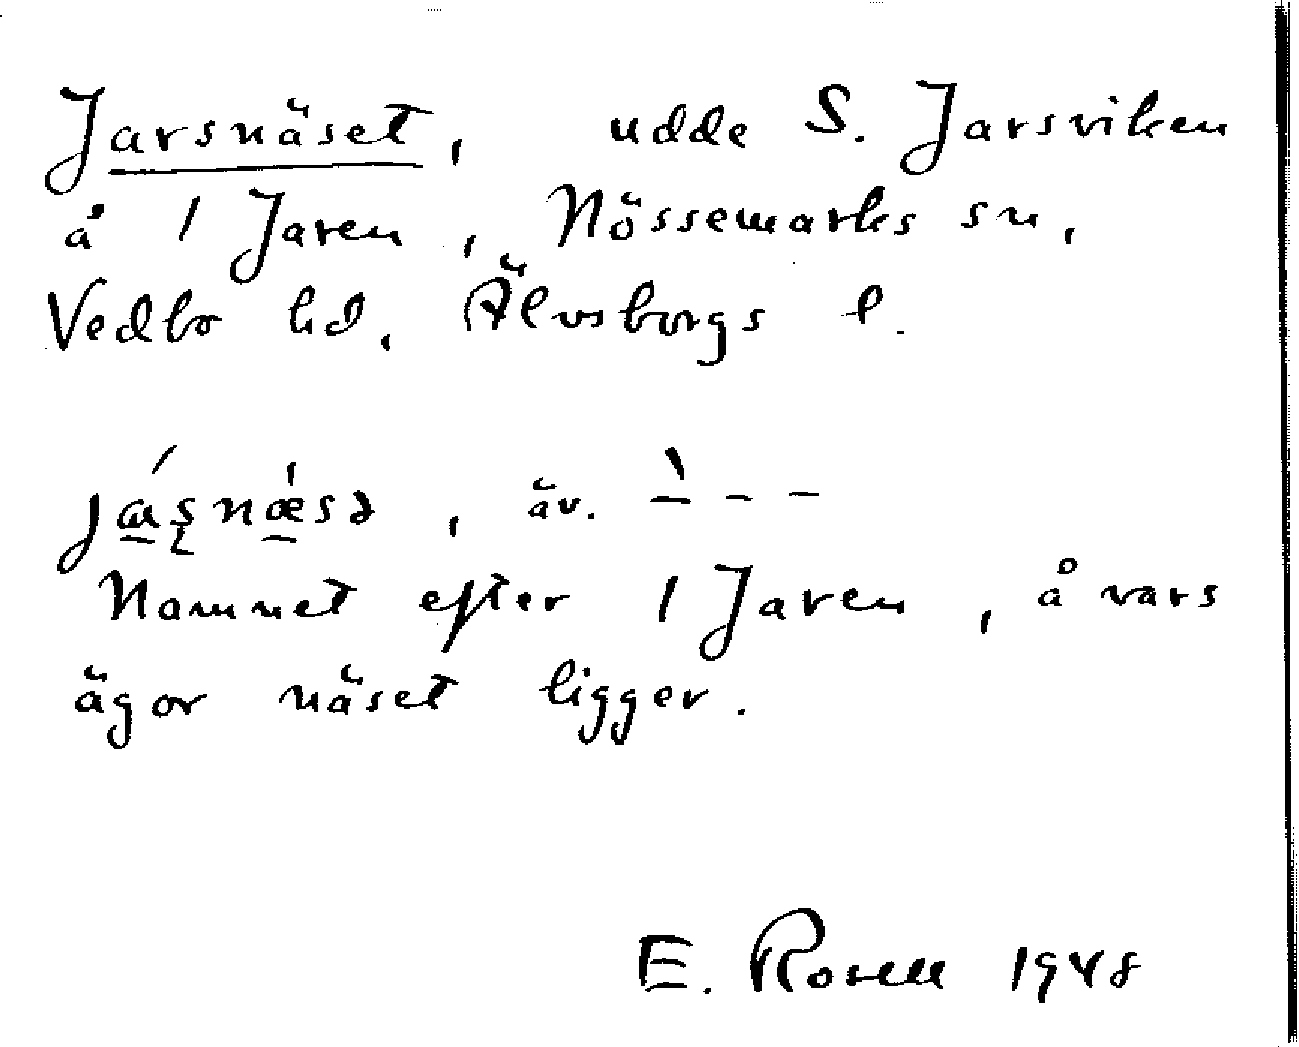 Jarsnäset, udde S. Jarsviken
å 1 Jaren, Nössemarks sn,
Vedbo hd, Älvsborgs l.
jɑ́ʂnæ̀sə, äv. ̀– – –
Namnet efter 1 Jaren, å vars
ägor näset ligger.
E. Rosell 1948